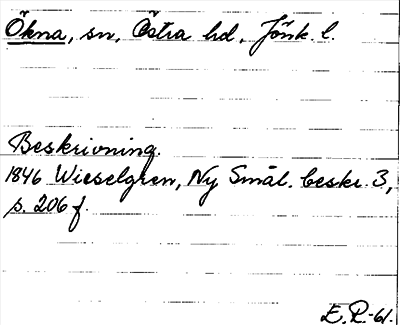 Ökna, sn, Östra hd, Jönk. l.
Beskrivning.
1846 Wieselgren, Ny Smål. beskr. 3,
s. 206 f.
E. R. -61.